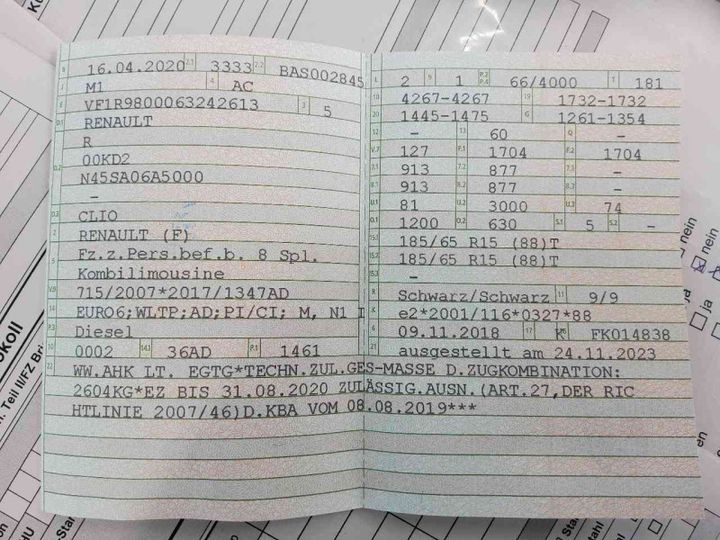 B 16.04.2020 2.1 3333 2.2 BAS002845
J M1 4 AC
E VF1R9800063242613 3 5
D.1 RENAULT
R
00KD2
D.2 N45SA06A5000
–
D.3 CLIO
2 RENAULT (F)
5 Fz.z.Pers.bef.b. 8 Spl.
Kombilimousine
V.9 715/2007*2017/1347AD
14 EURO6;WLTP;AD;PI/CI; M, N1 I
P.3 Diesel
10 0002 14.1 36AD P.1 1461
L 2 9 1 P.2 P.4 66/4000 T 181
18 4267-4267 19 1732-1732
20 1445-1475 G 1261-1354
12 – 13 60 Q –
V.7 127 F.1 1704 F.2 1704
7.1 913 7.2 877 7.3 –
8.1 913 8.2 877 8.3 –
U.1 81 U.2 3000 U.3 74
O.1 1200 O.2 630 S.1 5 S.2 –
15.1 185/65 R15 (88)T
15.2 185/65 R15 (88)T
15.3 –
R Schwarz/Schwarz 11 9/9
K e2*2001/116*0327*88
6 09.11.2018 17 K 16 FK014838
21 ausgestellt am 24.11.2023
22 WW.AHK LT. EGTG*TECHN.ZUL.GES-MASSE D.ZUGKOMBINATION:
2604KG*EZ BIS 31.08.2020 ZULÄSSIG.AUSN.(ART.27,DER RIC
HTLINIE 2007/46)D.KBA VOM 08.08.2019***
okoll
Teil II/FZ Bri
HU
nein
ja
nein
ja